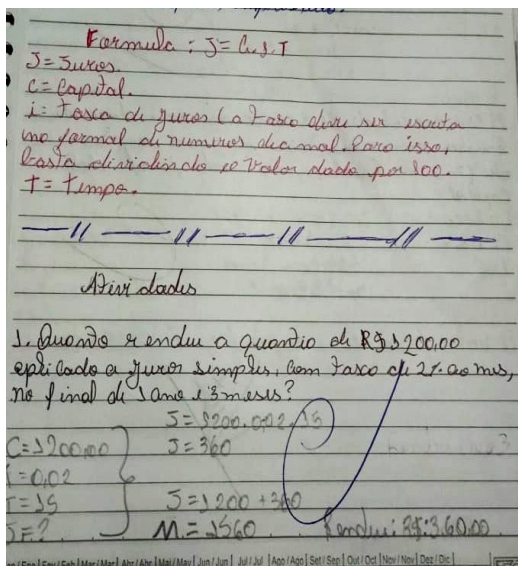 Formula : J = C.I.T
J = Juros.
C = Capital.
i = taxa de juros (a taxa deve ser escrita
no formal de numeros decimal. Para isso,
basta dividindo o valor dado por 100.
T = tempo.
Atividades
1. Quanto rendeu a quantia de R$ 1200,00
aplicado a juros simples, com taxa de 2% ao mes,
no final de 1 ano e 3 meses?
J = 1200.0,02.15
C = 1200,00
J = 360
i = 0,02
T = 15
J = 1200 + 360
J = ?
M = 1560
Rendeu: R$: 360,00
Jun / Jun
Jul / Jul
Ago / Ago
Set / Sep
Out / Oct
Nov / Nov
Dez / Dic